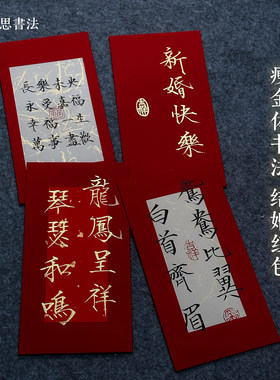 思書法
長樂未央
永受嘉福
幸福一生
萬事盡歡
新婚快樂
龍鳳呈祥
琴瑟和鳴
鴛鴦比翼
白首齊眉
瘦金体书法 结婚红包